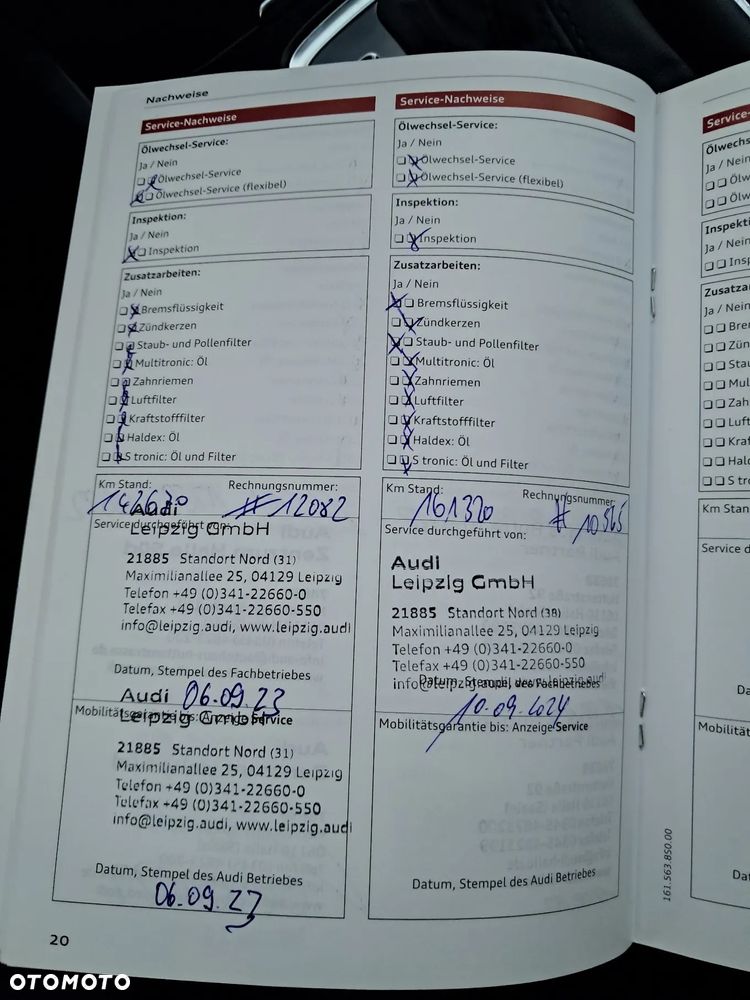 Nachweise
Service-Nachweise
Ölwechsel-Service:
Ja / Nein
Ölwechsel-Service
Ölwechsel-Service (flexibel)
Inspektion:
Ja / Nein
Inspektion
Zusatzarbeiten:
Ja / Nein
Bremsflüssigkeit
Zündkerzen
Staub- und Pollenfilter
Multitronic: Öl
Zahnriemen
Luftfilter
Kraftstofffilter
Haldex: Öl
S tronic: Öl und Filter
Km Stand: Rechnungsnummer:
142630 # 12082
Service durchgeführt von:
Audi
Leipzig GmbH
21885 Standort Nord (31)
Maximilianallee 25, 04129 Leipzig
Telefon +49 (0)341-22660-0
Telefax +49 (0)341-22660-550
info@leipzig.audi, www.leipzig.audi
Datum, Stempel des Fachbetriebes
06.09.23
Mobilitätsgarantie bis: Anzeige Service
Audi
Leipzig GmbH
21885 Standort Nord (31)
Maximilianallee 25, 04129 Leipzig
Telefon +49 (0)341-22660-0
Telefax +49 (0)341-22660-550
info@leipzig.audi, www.leipzig.audi
Datum, Stempel des Audi Betriebes
06.09.23
20
Service-Nachweise
Ölwechsel-Service:
Ja / Nein
Ölwechsel-Service
Ölwechsel-Service (flexibel)
Inspektion:
Ja / Nein
Inspektion
Zusatzarbeiten:
Ja / Nein
Bremsflüssigkeit
Zündkerzen
Staub- und Pollenfilter
Multitronic: Öl
Zahnriemen
Luftfilter
Kraftstofffilter
Haldex: Öl
S tronic: Öl und Filter
Km Stand: Rechnungsnummer:
161320 # 10565
Service durchgeführt von:
Audi
Leipzig GmbH
21885 Standort Nord (38)
Maximilianallee 25, 04129 Leipzig
Telefon +49 (0)341-22660-0
Telefax +49 (0)341-22660-550
info@leipzig.audi, www.leipzig.audi
Datum, Stempel des Fachbetriebes
10.09.2024
Mobilitätsgarantie bis: Anzeige Service
Datum, Stempel des Audi Betriebes
161.563.850.00
Service-
Ölwechs
Ja / Nein
Ölw
Ölw
Inspekti
Ja / Nein
Insp
Zusatza
Ja / Nein
Bre
Zün
Stau
Mul
Zah
Luft
Kraf
Hald
S tro
Km Stan
Service d
Da
Mobilität
Da
OTOMOTO